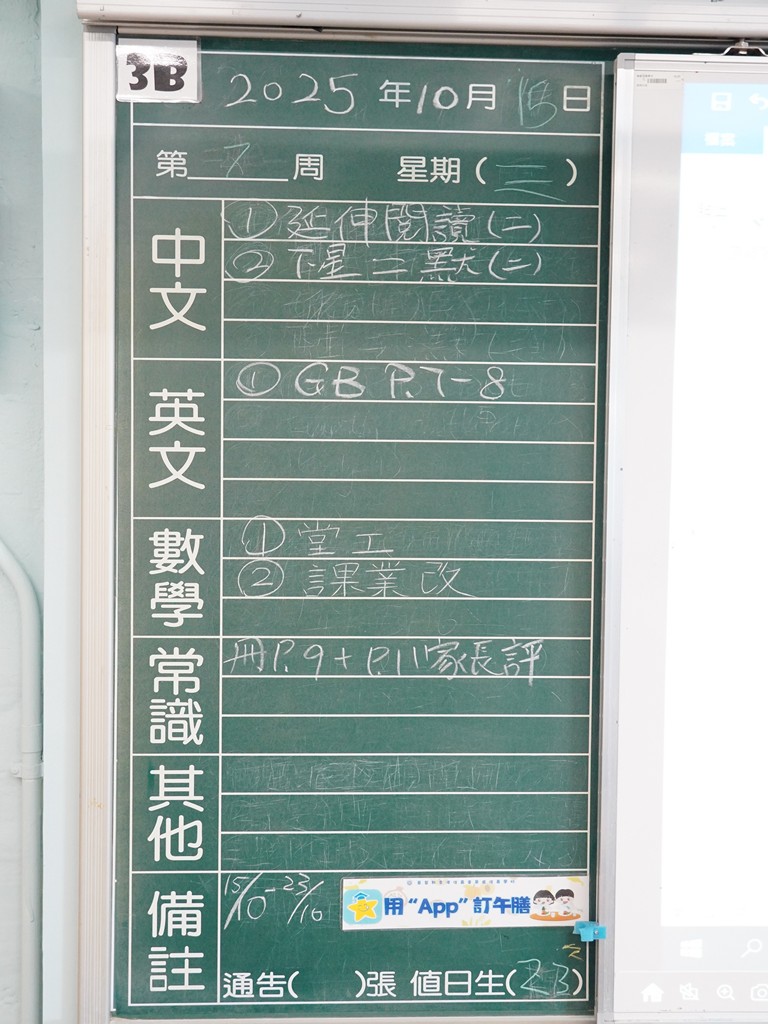 3B
2025年10月15日
第7周 星期(三)
中文
① 延伸閱讀(二)
② 下星二默(二)
英文
① GB P.7-8
數學
① 堂工
② 課業改
常識
冊P.9+P.11家長評
其他
備註
15/10-23/10
用“App”訂午膳
通告( )張 值日生(23)